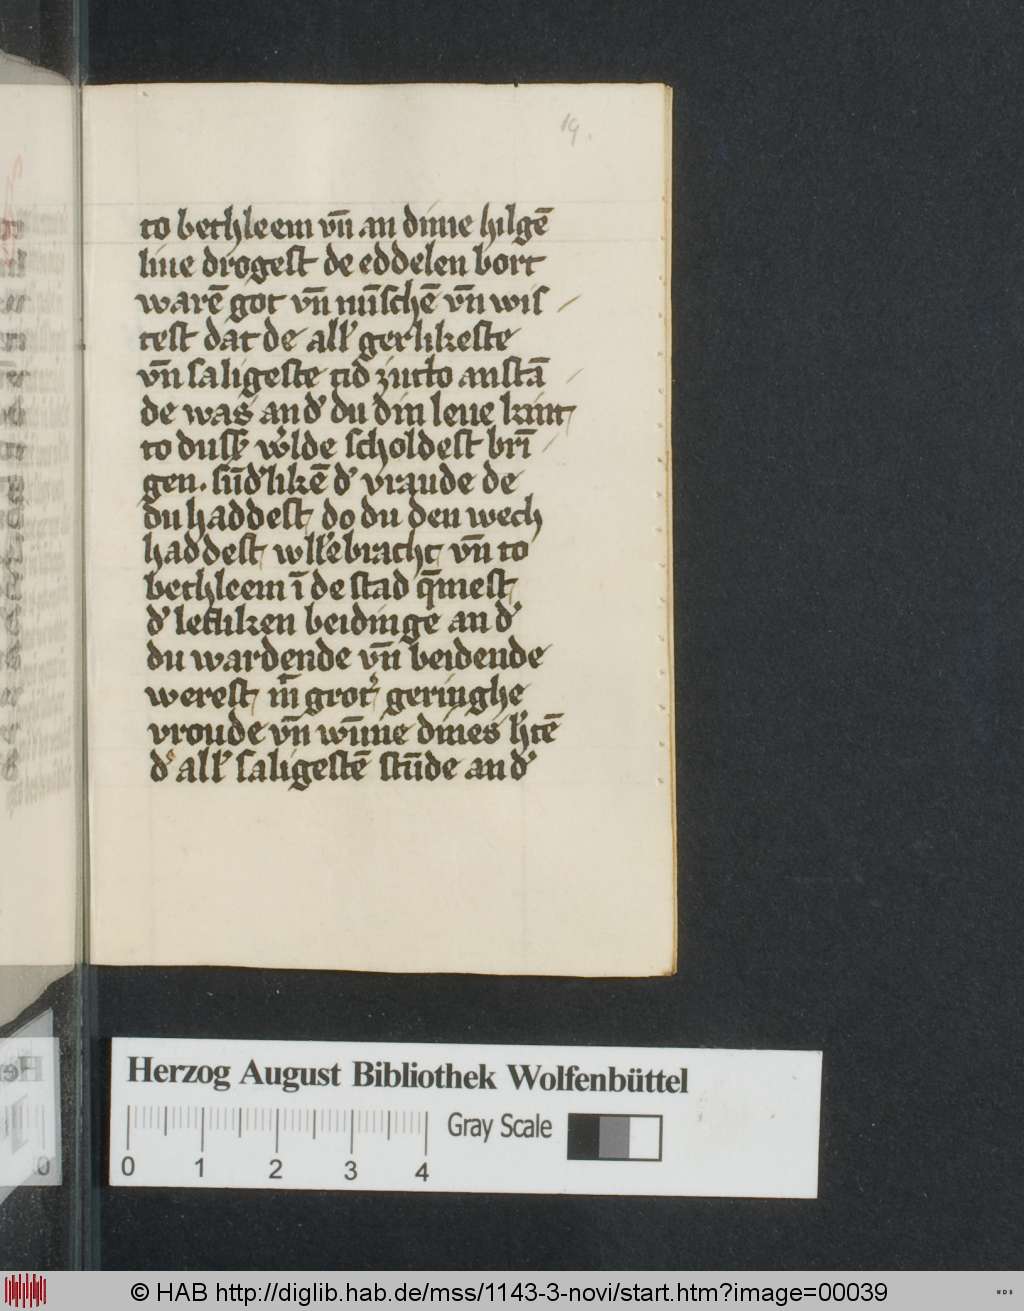 19.
to bethleem vn̄ an dime hilgē
liue drogest de eddelen bort
warē got vn̄ mīschē vn̄ wis
test dat de all' gerlikeste
vn̄ saligeste tid zutto anstā
de was an d' du din leue kint
to dusß' w'lde scholdest brī
gen. sūd'likē d' vraude de
du haddest do du den wech
haddest wll'ebracht vn̄ to
bethleem ī de stad q̄mest
d' lefliken beidinge an d'
du wardende vn̄ beidende
werest m̄ grot' geringhe
vroude vn̄ wūne dines h'tē
d' all' saligestē stūde an d'
Herzog August Bibliothek Wolfenbüttel
Gray Scale
0 1 2 3 4
© HAB http://diglib.hab.de/mss/1143-3-novi/start.htm?image=00039